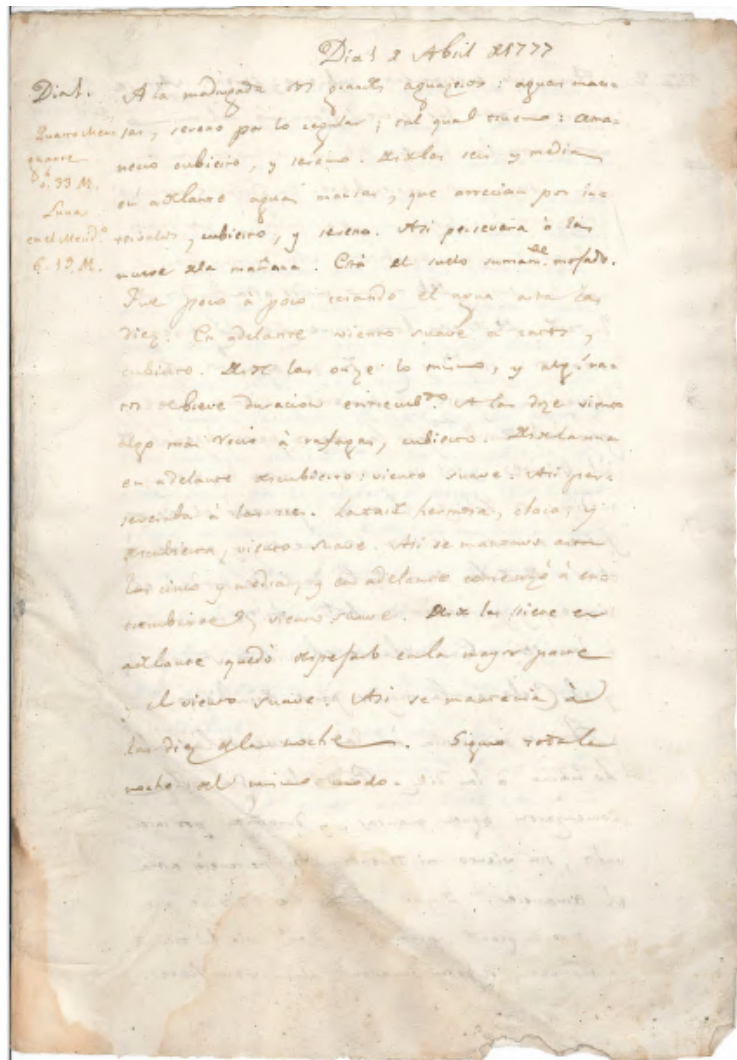 Dia 1 d Abril d 1777
Dia 1.
A la madrugada dos grandes aguazeros: aguas man-
Quarto Men-
guante
6. 33 M.
Luna
en el Mend.º
6. 19. M.
sas, sereno por lo regular; tal qual trueno: ama-
necio cubierto, y sereno. Desde las seis y media
en adelante aguas mansas, que arrecian por in-
tervalos, cubierto, y sereno. Asi persevera à las
nueve de la mañana. Està el suelo sumam.te mojado.
Fue poco à poco el agua asta las
diez. En adelante viento suave à ratos,
cubierto. Desde las onze lo mismo, y algunos
de breve duracion A las doze viento
algo mas recio à rafagas, cubierto. Desde la una
en adelante descubierto: viento suave. Asi per-
severaba à las tres. La tarde hermosa, clara, y
descubierta, viento suave. Asi se mantuvo asta
las cinco y media, y en adelante comenzó à
viento suave. Desde las siete en
adelante quedó despejado en la mayor parte
el viento suave. Asi se mantenia à
las diez de la noche. Siguio toda la
noche del mismo modo.